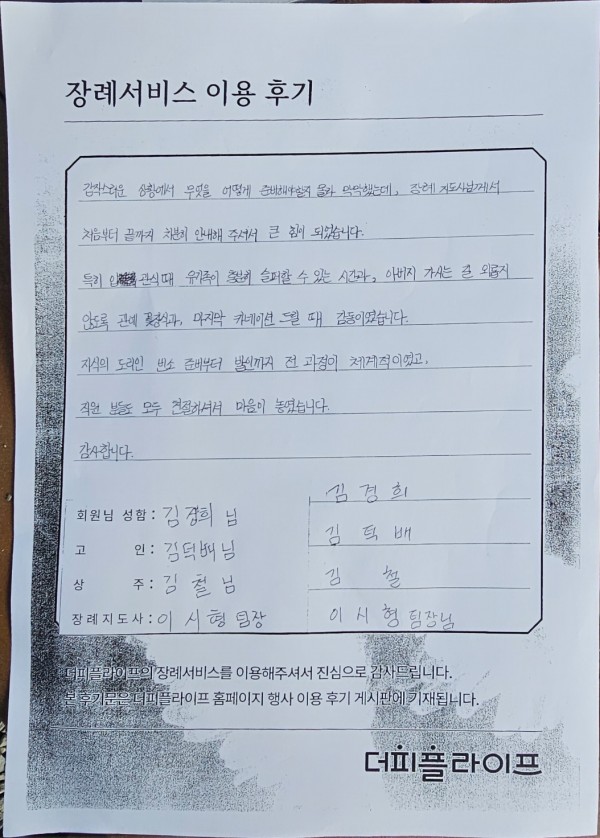 장례서비스 이용 후기
갑작스러운 상황에서 무엇을 어떻게 준비해야할지 몰라 막막했는데, 장례 지도사님께서
처음부터 끝까지 차분히 안내해 주셔서 큰 힘이 되었습니다.
특히 입관식때 유가족이 충분히 슬퍼할 수 있는 시간과, 아버지 가시는 길 외롭지
않도록 관에 꽃장식과, 마지막 카네이션 드릴 때 감동이었습니다.
자식의 도리인 빈소 준비부터 발인까지 전 과정이 체계적이었고,
직원 분들도 모두 친절하셔서 마음이 놓였습니다.
감사합니다.
회원님 성함 : 김경희 님 김경희
고 인 : 김덕배님 김덕배
상 주 : 김철님 김철
장례지도사 : 이시형 팀장 이시형 팀장님
더피플라이프의 장례서비스를 이용해주셔서 진심으로 감사드립니다.
본 후기문은 더피플라이프 홈페이지 행사 이용 후기 게시판에 기재됩니다.
더피플라이프